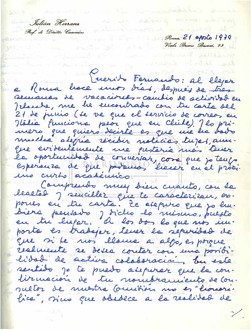 Julián Herranz
Prof. di Diritto Canonico
Roma, 21 agosto 1979
Viale Bruno Buozzi, 73
Querido Fernando: al llegar
a Roma, hace unos días, después de tres
semanas de vacaciones-cambio de actividad en
Irlanda, me he encontrado con tu carta del
21 de junio (se ve que el servicio de correos en
Italia funciona peor que en Chile). Lo pri-
mero que quiero decirte es que me ha dado
mucha alegría recibir noticias tuyas, aun-
que evidentemente me gustaría más tener
la oportunidad de conversar, cosa que ya tengo
esperanza de que podamos hacer en el próxi-
mo curso académico.
Comprendo muy bien cuanto, con la
lealtad y sencillez que te caracterizan, ex-
pones en tu carta, y te aseguro que yo hu-
biera pensado y dicho lo mismo, puesto
en tu lugar. A los dos lo que nos im-
porta es trabajar, tener la seguridad de
que si se nos llama a algo, es porque
realmente se desea contar con una posibi-
lidad de activa colaboración. En este
sentido yo te puedo asegurar que la con-
firmación de tu nombramiento de Con-
sultor de nuestra Comisión no es "honorí-
fica", sino que obedece a la realidad de